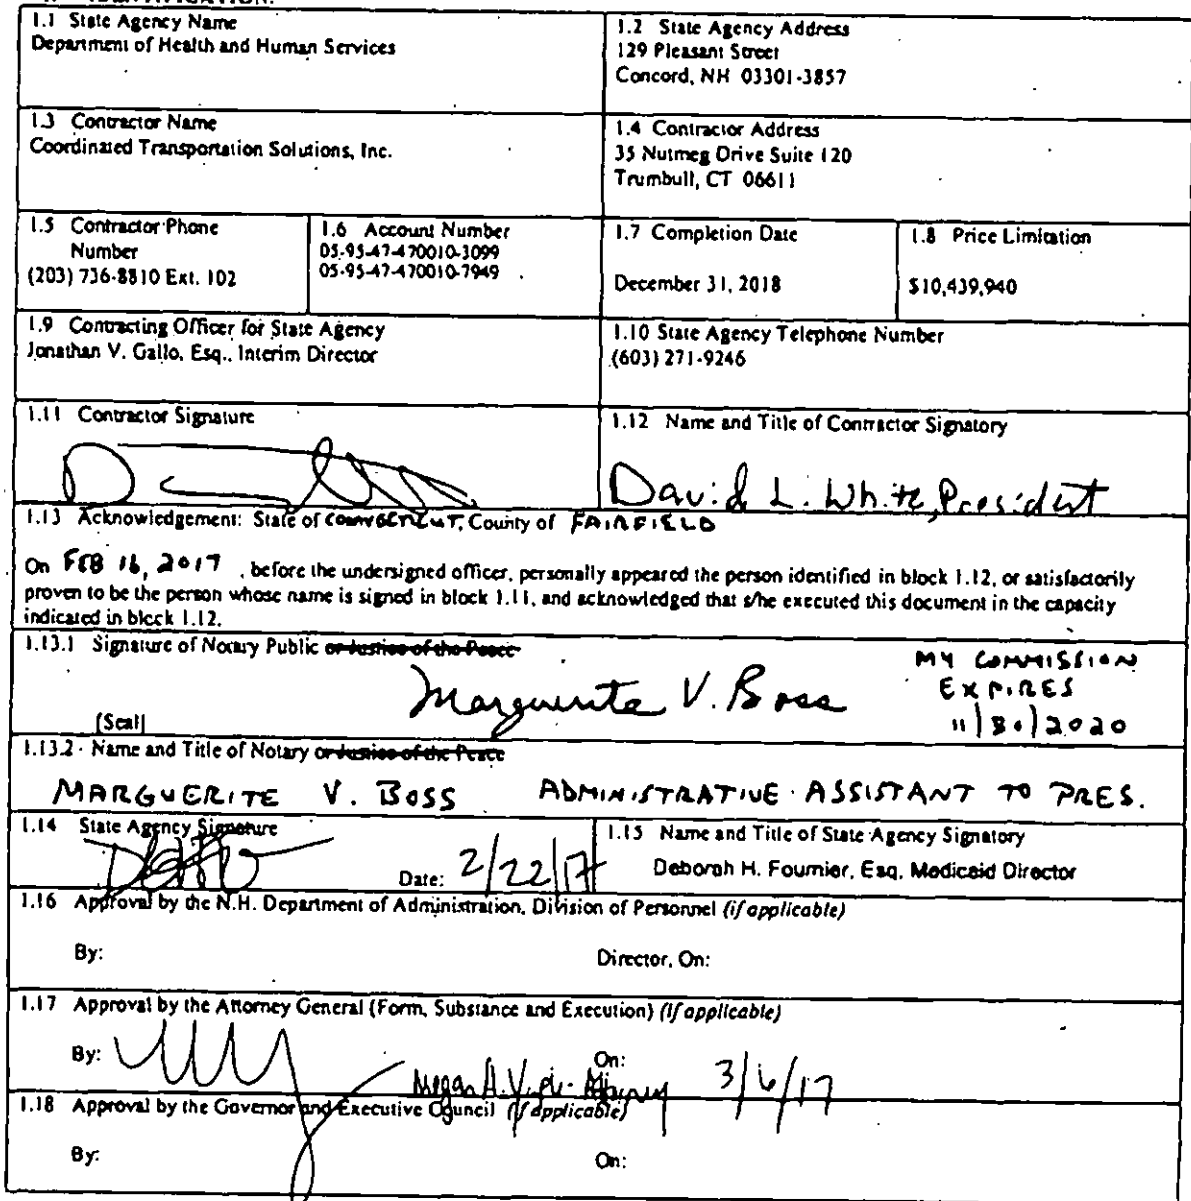 1.1 State Agency Name
Department of Health and Human Services
1.2 State Agency Address
129 Pleasant Street
Concord, NH 03301-3857
1.3 Contractor Name
Coordinated Transportation Solutions, Inc.
1.4 Contractor Address
35 Nutmeg Drive Suite 120
Trumbull, CT 06611
1.5 Contractor Phone
Number
(203) 736-8810 Ext. 102
1.6 Account Number
05-95-47-470010-3099
05-95-47-470010-7949
1.7 Completion Date
December 31, 2018
1.8 Price Limitation
$10,439,940
1.9 Contracting Officer for State Agency
Jonathan V. Gallo, Esq., Interim Director
1.10 State Agency Telephone Number
(603) 271-9246
1.11 Contractor Signature
1.12 Name and Title of Contractor Signatory
David L. White, President
1.13 Acknowledgement: State of CONNECTICUT, County of FAIRFIELD
On FEB 16, 2017 , before the undersigned officer, personally appeared the person identified in block 1.12, or satisfactorily
proven to be the person whose name is signed in block 1.11, and acknowledged that s/he executed this document in the capacity
indicated in block 1.12.
1.13.1 Signature of Notary Public or Justice of the Peace
MY COMMISSION
EXPIRES
11/30/2020
Marguerite V. Boss
[Seal]
1.13.2 Name and Title of Notary or Justice of the Peace
MARGUERITE V. BOSS ADMINISTRATIVE ASSISTANT TO PRES.
1.14 State Agency Signature
Date: 2/22/17
1.15 Name and Title of State Agency Signatory
Deborah H. Fournier, Esq. Medicaid Director
1.16 Approval by the N.H. Department of Administration, Division of Personnel (if applicable)
By: Director, On:
1.17 Approval by the Attorney General (Form, Substance and Execution) (if applicable)
By: On:
Megan A. 3/6/17
1.18 Approval by the Governor and Executive Council (if applicable)
By: On: